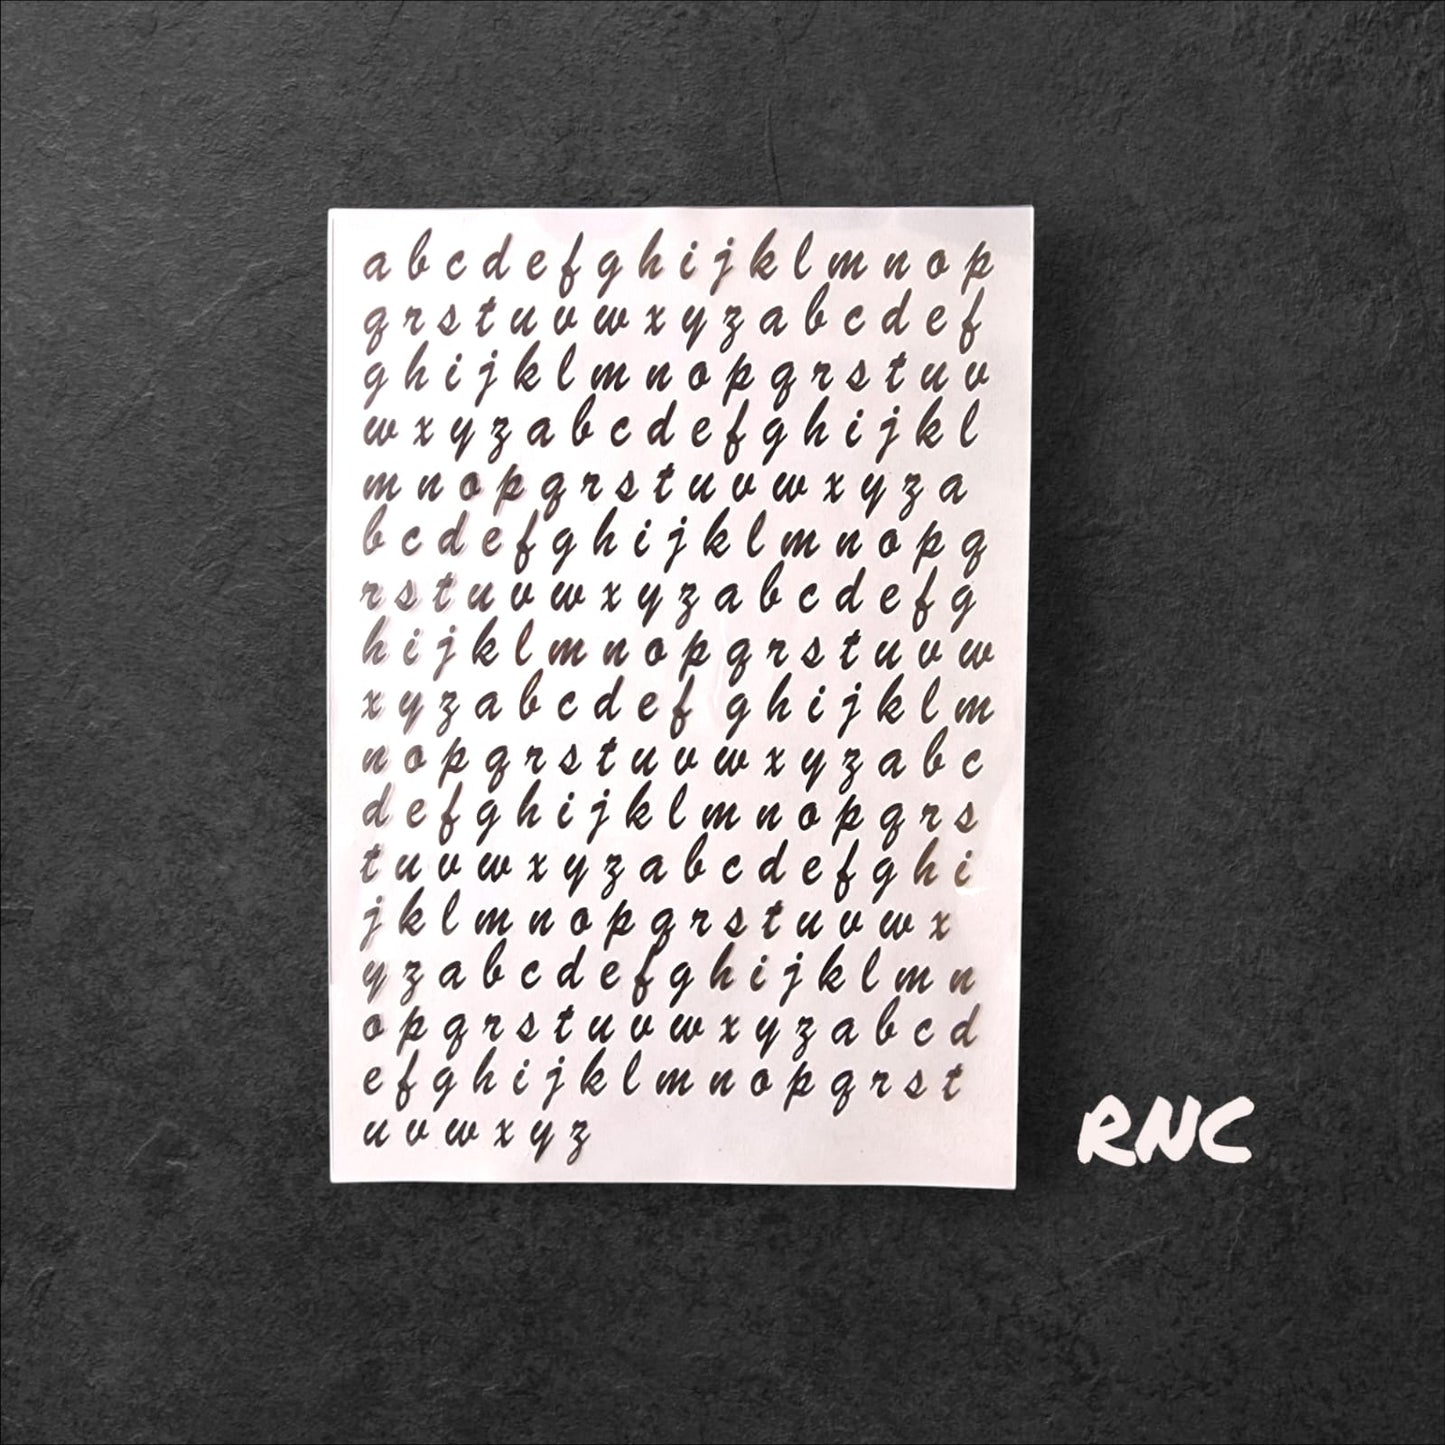 a b c d e f g h i j k l m n o p
q r s t u v w x y z a b c d e f
g h i j k l m n o p q r s t u v
w x y z a b c d e f g h i j k l
m n o p q r s t u v w x y z a
b c d e f g h i j k l m n o p q
r s t u v w x y z a b c d e f g
h i j k l m n o p q r s t u v w
x y z a b c d e f g h i j k l m
n o p q r s t u v w x y z a b c
d e f g h i j k l m n o p q r s
t u v w x y z a b c d e f g h i
j k l m n o p q r s t u v w x
y z a b c d e f g h i j k l m n
o p q r s t u v w x y z a b c d
e f g h i j k l m n o p q r s t
u v w x y z
RNC